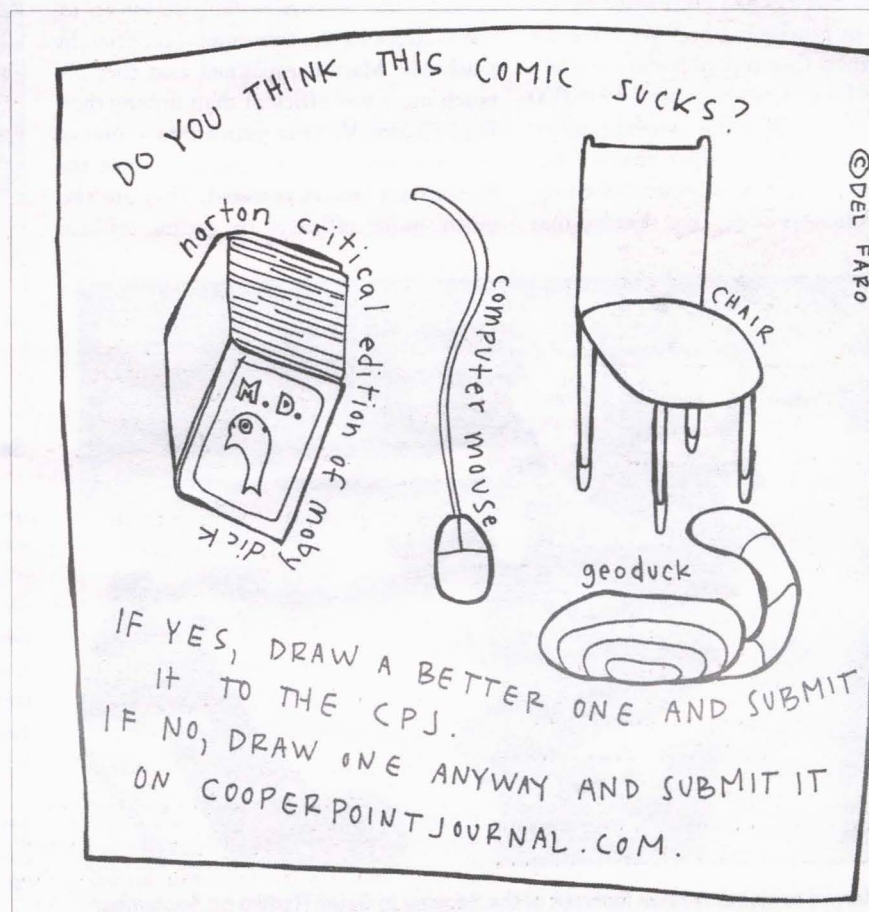 DO YOU THINK THIS COMIC SUCKS?
© DEL FARO
norton critical edition of moby dick
M.D.
computer mouse
CHAIR
geoduck
IF YES, DRAW A BETTER ONE AND SUBMIT
IT TO THE CPJ.
IF NO, DRAW ONE ANYWAY AND SUBMIT IT
ON COOPERPOINTJOURNAL.COM.